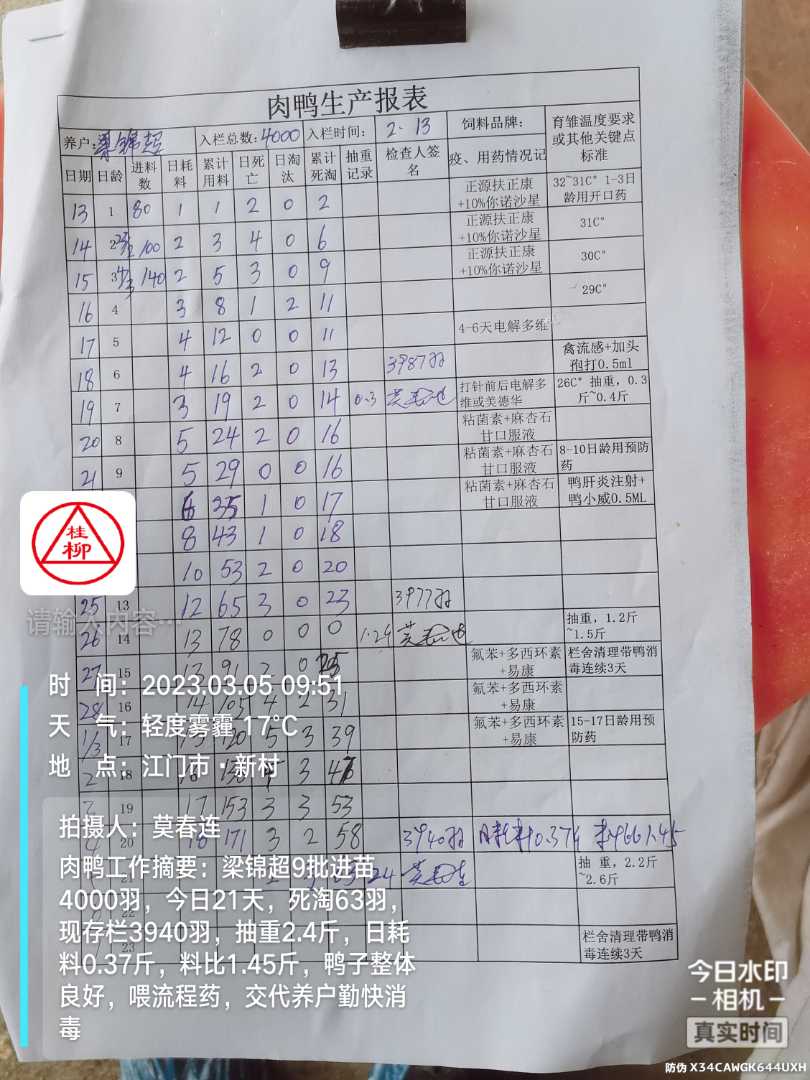 肉鸭生产报表
养户: 梁锦超 入栏总数: 4000 入栏时间: 2.13 饲料品牌: 育雏温度要求或其他关键点标准
日期 日龄 进料数 日耗料 累计用料 日死亡 日淘汰 累计死淘 抽重记录 检查人签名 疫、用药情况记
13 1 80 1 1 2 0 2 正源扶正康+10%你诺沙星 32~31C° 1-3日龄用开口药
14 2 100 2 3 4 0 6 正源扶正康+10%你诺沙星 31C°
15 3 140 2 5 3 0 9 正源扶正康+10%你诺沙星 30C°
16 4 3 8 1 2 11 29C°
17 5 4 12 0 0 11 4-6天电解多维
18 6 4 16 2 0 13 3987羽 禽流感+加头孢打0.5ml
19 7 3 19 2 0 14 0.3 打针前后电解多维或美德华 26C° 抽重，0.3斤~0.4斤
20 8 5 24 2 0 16 粘菌素+麻杏石甘口服液
21 9 5 29 0 0 16 粘菌素+麻杏石甘口服液 8-10日龄用预防药
6 35 1 0 17 粘菌素+麻杏石甘口服液 鸭肝炎注射+鸭小威0.5ML
8 43 1 0 18
10 53 2 0 20
25 13 12 65 3 0 23 3977羽
26 14 13 78 0 0 0 1.24 抽重，1.2斤~1.5斤
27 15 13 91 2 0 25 氟苯+多西环素+易康 栏舍清理带鸭消毒连续3天
28 16 14 105 4 2 31 氟苯+多西环素+易康
1/3 17 120 5 3 39 氟苯+多西环素+易康 15-17日龄用预防药
2 18 3 47
19 17 153 3 3 53
20 18 171 3 2 58 3940羽 日耗料0.374 1.45
抽 重，2.2斤~2.6斤
22
23 栏舍清理带鸭消毒连续3天
桂柳
请输入内容…
时 间：2023.03.05 09:51
天 气：轻度雾霾 17°C
地 点：江门市·新村
拍摄人：莫春连
肉鸭工作摘要：梁锦超9批进苗
4000羽，今日21天，死淘63羽，
现存栏3940羽，抽重2.4斤，日耗
料0.37斤，料比1.45斤，鸭子整体
良好，喂流程药，交代养户勤快消
毒
今日水印
-相机-
真实时间
防伪 X34CAWGK644UXH